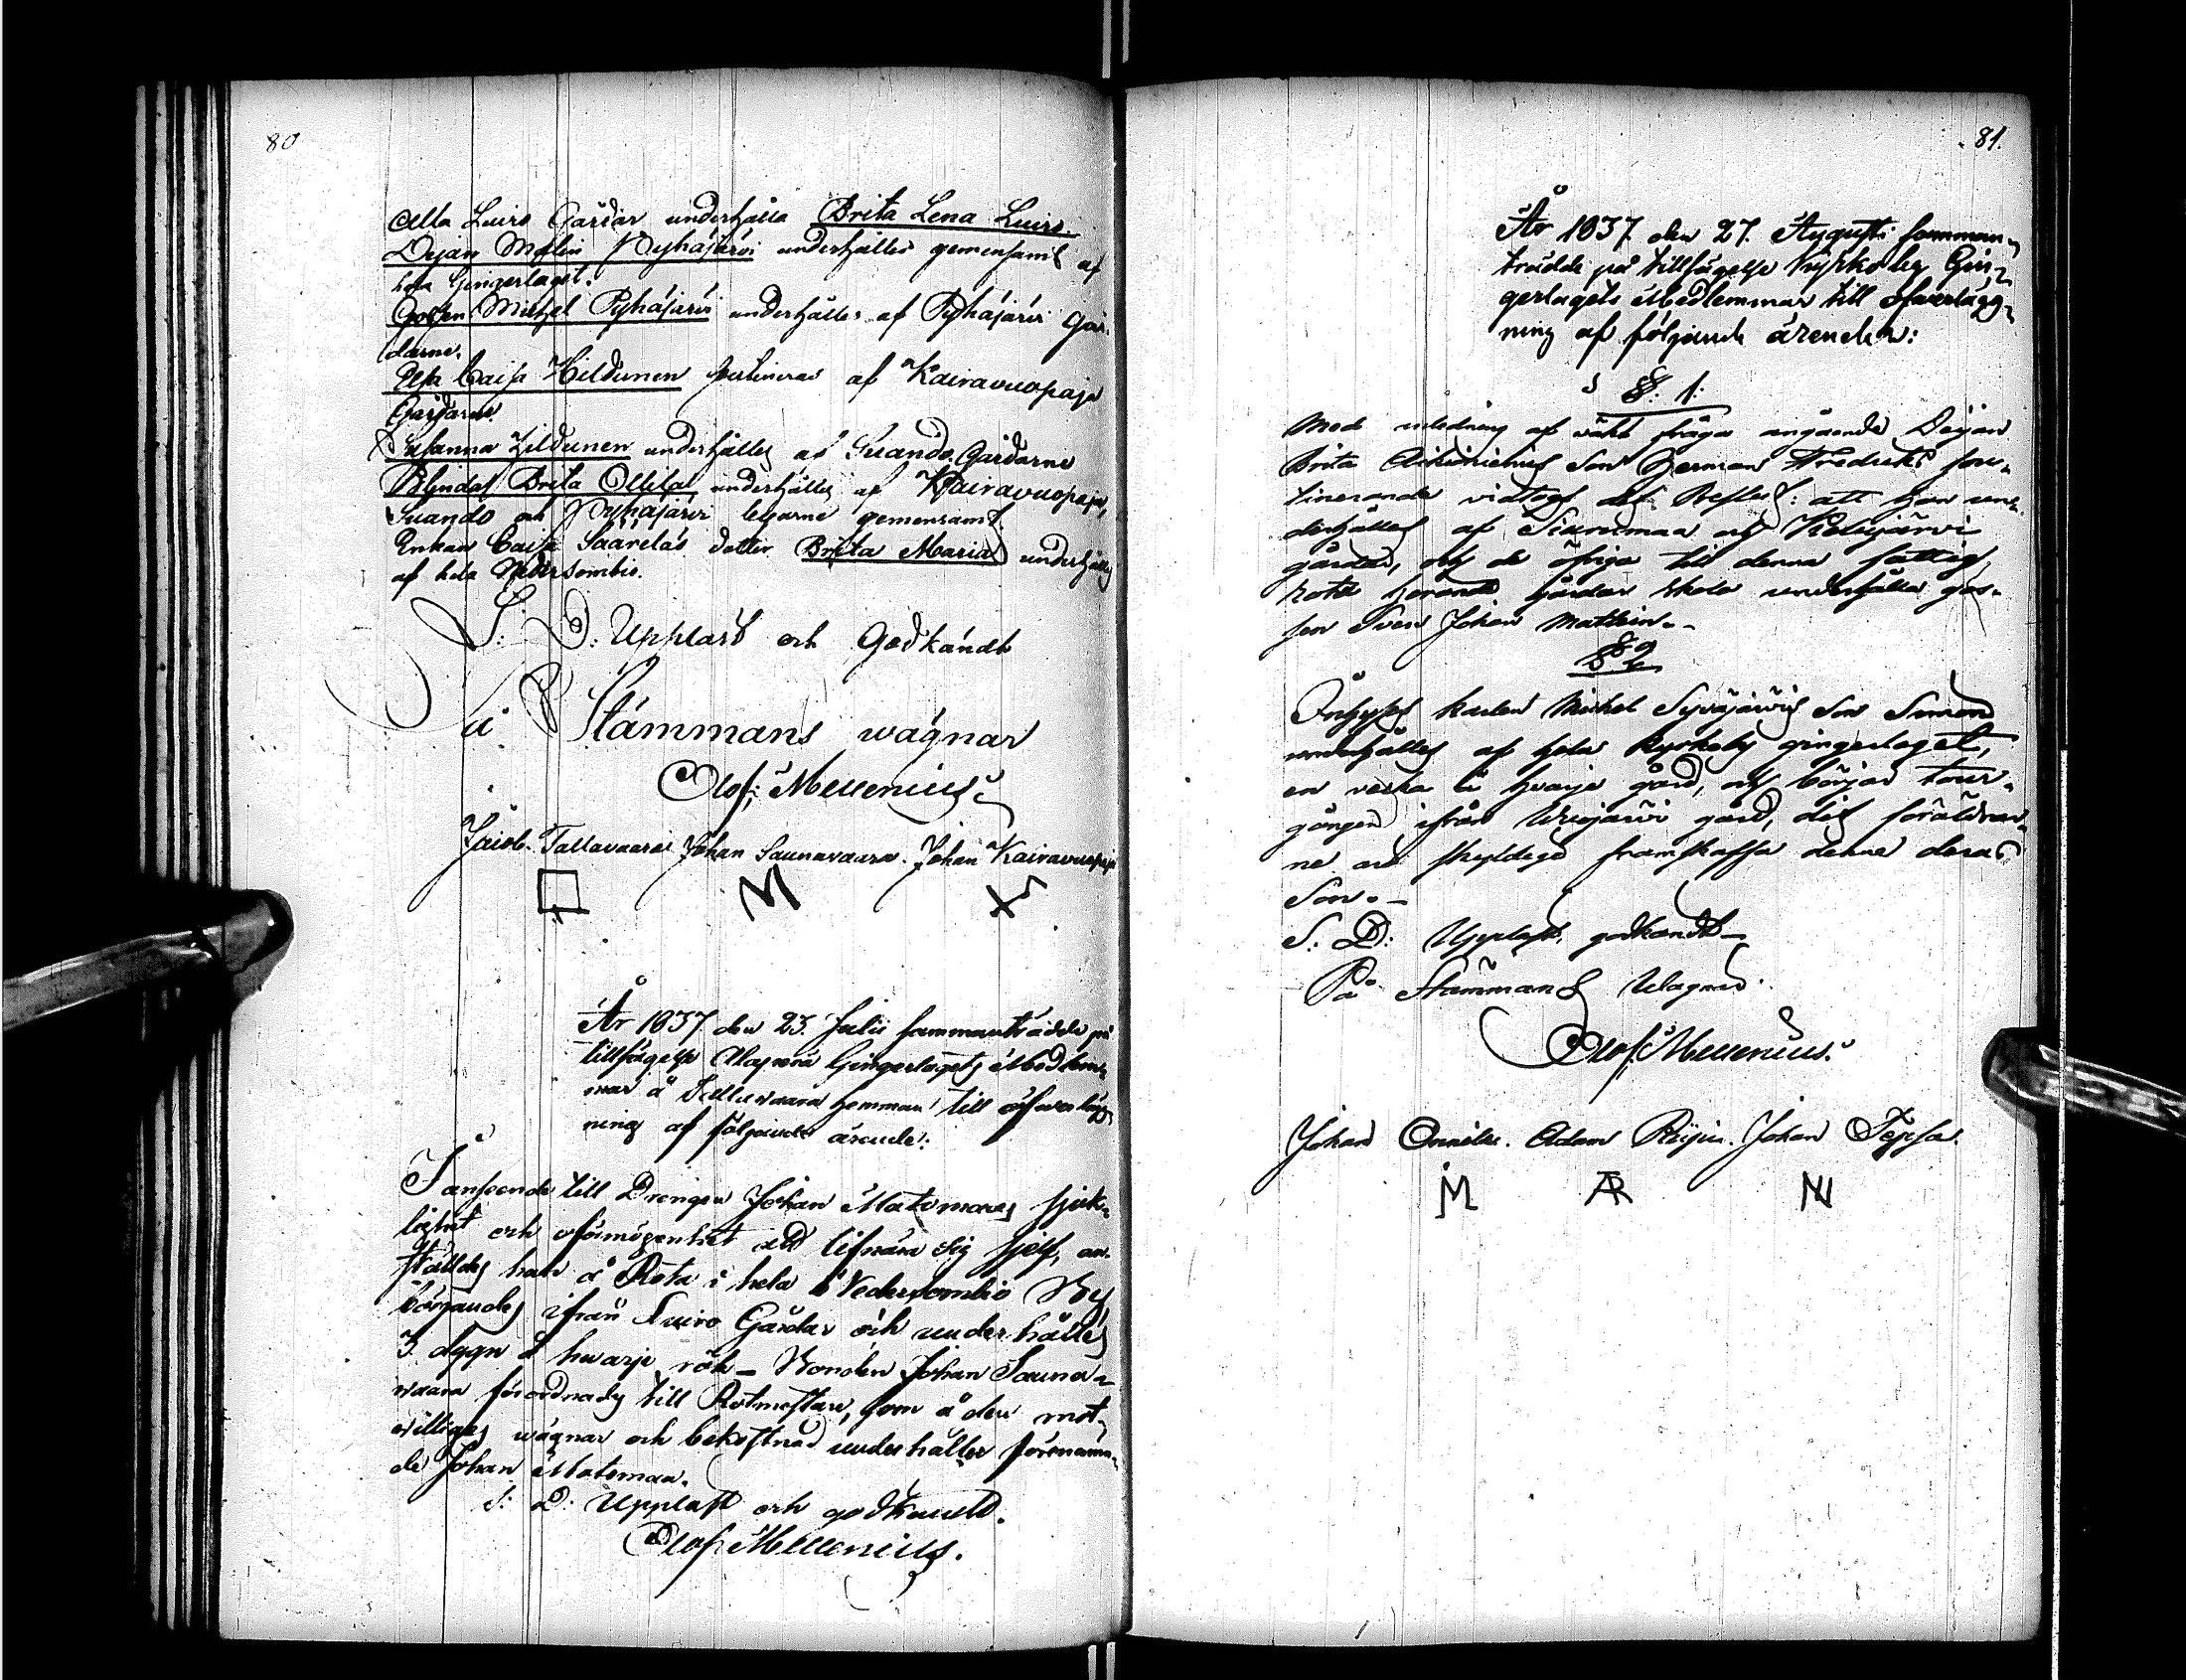 80
Alla Luiro Gårdar underhålla Brita Lena Luiro.
Pyhäjärvi underhålles gemensamt af
hela Gingerlaget.
Gossen Michel Pyhäjärvi underhålles af Pyhäjärvi Går-
darne.
Caisa Hildunen af Kairavuopaja
Gårdarne.
Susanna Hildunen underhålles af Suando Gårdarne
Blinda Brita Ollila underhålles af Kairavuopaja,
Suando och Pyhäjärvi byarne gemensamt.
Enkan Caisa Saarelas dotter Brita Maria underhålles
af hela Nedersombio.
S: D: Uppläst och Godkändt
På Stämmans wägnar
Olof Mellenius.
Jacob Tallavaara Johan Saunavaara. Johan Kairavuopaja
År 1837 den 23. Julii sammanträdde på
tillsägelse Alaperä Gingerlagets Medlem-
mar å Tallavaara hemman till öfverlägg-
ning af följande ärende:
I anseende till Drengen Johan Matomaas sjuk-
lighet och oförmögenhet att lifnära sig sjelf, an-
ställdes han å Rota i hela Nedersombio By
börjandes ifrån Luiro Gårdar och underhålles
3 dygn å hwarje rök – Bonden Johan Sauna-
waara förordnades till Rotmästare, som å den mot-
williges wägnar och bekostnad underhåller förenämn-
de Johan Matomaa.
S: D: Uppläst och godkändt.
Olof Mellenius.
81.
År 1837 den 27. Augusti samman-
trädde på tillsägelse Kyrkoby Gin-
gerlagets Medlemmar till öfverlägg-
ning af följande ärender:
§: 1:
Med anledning af väkt fråga angående Pigan
Brita son Herman Fredriks
vidtogs det Beslut: att han un-
derhålles af och Kelujärvi
gårdar, och de öfriga till denna fattig
rote hörande gårdar skola underhålla gos-
sen Sven Johan
§ 2
Inhyses karlen Michel Syväjärvis Son Simon
underhålles af hela Kyrkoby gingerlaget,
en vecka å hvarje gård, och börjar tour-
gången ifrån gård, dit föräldrar-
ne äro skyldige framskaffa denne deras
Son. –
S: D: Uppläst, godkändt –
På Stämmans Wägnar
Olof Mellenius.
Johan Onnela. Adam Johan Teppo.